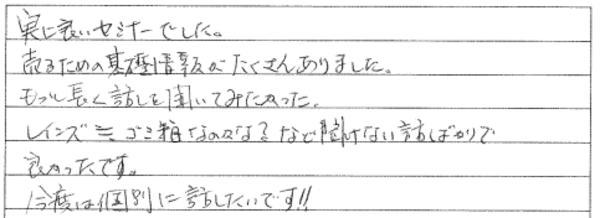 実に良いセミナーでした。
売るための基礎情報がたくさんありました。
もっと長く話しを聞いてみたかった。
レインズ≒ゴミ箱なのなる など聞けない話ばかりで
良かったです。
今度は個別に話したいです!!